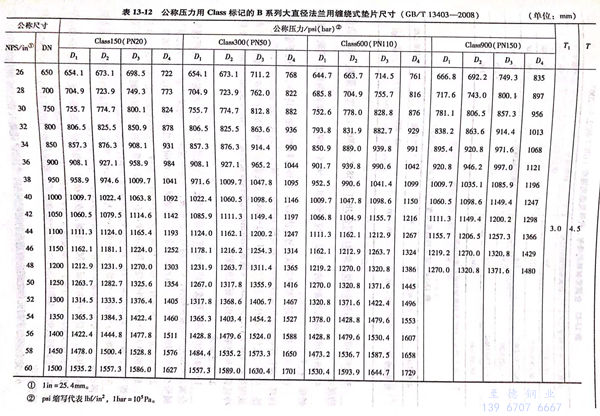 表 13-12 公称压力用 Class 标记的 B 系列大直径法兰用缠绕式垫片尺寸 (GB/T 13403—2008) (单位: mm)
公称尺寸 公称压力/psi(bar)②
NPS/in① DN Class150(PN20) Class300(PN50) Class600(PN110) Class900(PN150) T1 T
D1 D2 D3 D4 D1 D2 D3 D4 D1 D2 D3 D4 D1 D2 D3 D4
26 650 654.1 673.1 698.5 722 654.1 673.1 711.2 768 644.7 663.7 714.5 761 666.8 692.2 749.3 835
28 700 704.9 723.9 749.3 773 704.9 723.9 762.0 822 685.8 704.9 755.7 816 717.6 743.0 800.1 897
30 750 755.7 774.7 800.1 824 755.7 774.7 812.8 882 752.6 778.0 828.8 876 781.1 806.5 857.3 956
32 800 806.5 825.5 850.9 878 806.5 825.5 863.6 936 793.8 831.9 882.7 929 838.2 863.6 914.4 1013
34 850 857.3 876.3 908.1 931 857.3 876.3 914.4 990 850.9 889.0 939.8 991 895.4 920.8 971.6 1068
36 900 908.1 927.1 958.9 984 908.1 927.1 965.2 1044 901.7 939.8 990.6 1042 920.8 946.2 997.0 1121
38 950 958.9 974.6 1009.7 1041 971.6 1009.7 1047.8 1095 952.5 990.6 1041.4 1099 1009.7 1035.1 1085.9 1196
40 1000 1009.7 1022.4 1063.8 1092 1022.4 1060.5 1098.6 1146 1009.7 1047.8 1098.6 1150 1060.5 1098.6 1149.4 1247
42 1050 1060.5 1079.5 1114.6 1142 1085.9 1111.3 1149.4 1197 1066.8 1104.9 1155.7 1216 1111.3 1149.4 1200.2 1298
44 1100 1111.3 1124.0 1165.4 1193 1124.0 1162.1 1200.2 1247 1111.3 1162.1 1212.9 1267 1155.7 1206.5 1257.3 1366 3.0 4.5
46 1150 1162.1 1181.1 1224.0 1252 1178.1 1216.2 1254.3 1314 1162.1 1212.9 1263.7 1324 1219.2 1270.0 1320.8 1429
48 1200 1212.9 1231.9 1270.0 1303 1231.9 1263.7 1311.4 1365 1219.2 1270.0 1320.8 1386 1270.0 1320.8 1371.6 1480
50 1250 1263.7 1282.7 1325.6 1354 1267.0 1317.8 1355.9 1416 1270.0 1320.8 1371.6 1445
52 1300 1314.5 1333.5 1376.4 1405 1317.8 1368.6 1406.7 1467 1320.8 1371.6 1422.4 1496
54 1350 1365.3 1384.3 1422.4 1460 1365.3 1403.4 1454.2 1527 1378.0 1428.8 1479.6 1553
56 1400 1422.4 1444.8 1477.8 1511 1428.8 1479.6 1524.0 1588 1428.8 1479.6 1530.4 1607
58 1450 1478.0 1500.4 1528.8 1576 1484.4 1535.2 1573.3 1650 1473.2 1536.7 1587.5 1658
60 1500 1535.2 1557.3 1586.0 1627 1557.3 1589.0 1630.4 1701 1530.4 1593.9 1644.7 1729
① 1in=25.4mm。
② psi 缩写代表 lbf/in², 1bar=10⁵Pa。
至德钢业
139 6707 6667